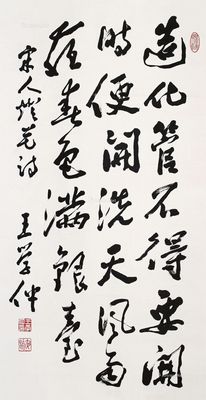 造化管不得要開
時便開洗天風雨
夜春色滿銀臺
宋人燈花詩
王学仲